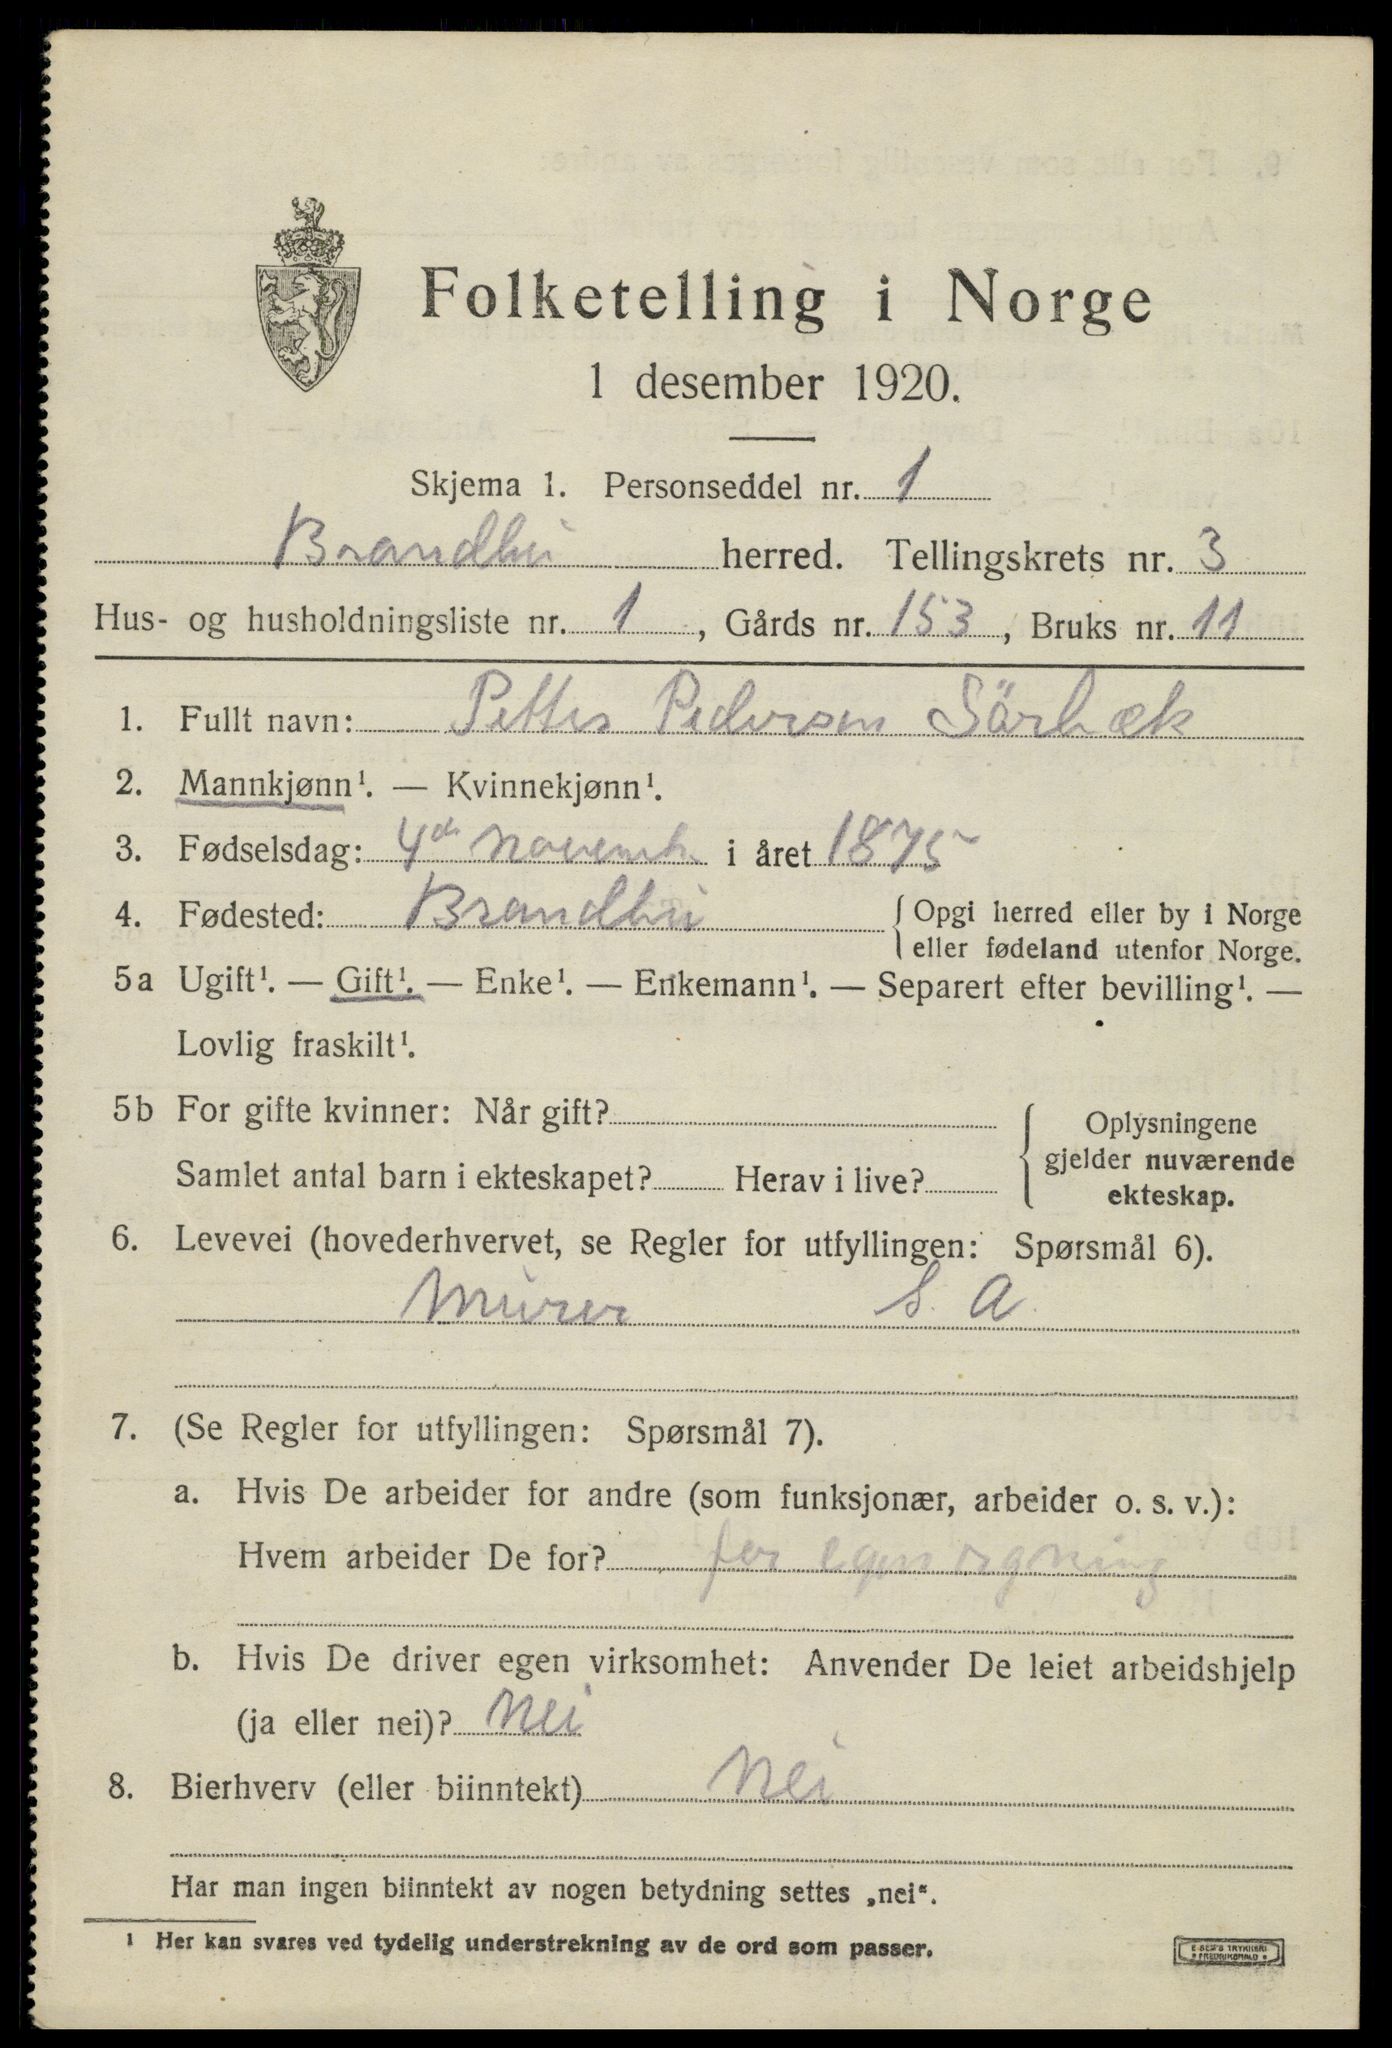 Folketelling i Norge
1 desember 1920.
Skjema 1. Personseddel nr. 1
Brandbu herred. Tellingskrets nr. 3
Hus- og husholdningsliste nr. 1, Gårds nr. 153, Bruks nr. 11
1. Fullt navn: Petter Pedersen Sörbæk
2. Mannkjønn¹. — Kvinnekjønn¹.
3. Fødselsdag: 4de novemb i året 1875
4. Fødested: Brandbu {Opgi herred eller by i Norge
eller fødeland utenfor Norge.
5a Ugift¹. — Gift¹. — Enke¹. — Enkemann¹. — Separert efter bevilling¹. —
Lovlig fraskilt¹.
5b For gifte kvinner: Når gift?
Samlet antal barn i ekteskapet? Herav i live?
{Oplysningene
gjelder nuværende
ekteskap.
6. Levevei (hovederhvervet, se Regler for utfyllingen: Spørsmål 6).
Murer S. A.
7. (Se Regler for utfyllingen: Spørsmål 7).
a. Hvis De arbeider for andre (som funksjonær, arbeider o. s. v.):
Hvem arbeider De for? for egen regning
b. Hvis De driver egen virksomhet: Anvender De leiet arbeidshjelp
(ja eller nei)? Nei
8. Bierhverv (eller biinntekt) Nei
Har man ingen biinntekt av nogen betydning settes „nei“.
¹ Her kan svares ved tydelig understrekning av de ord som passer.
E. SEM'S TRYKKERI
FREDRIKSHALD